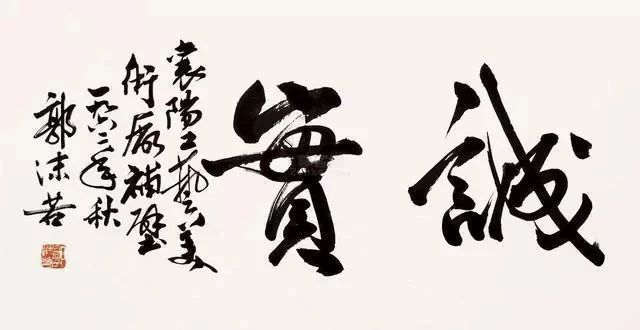 誠實
襄陽工藝美
術廠補壁
一九六二年秋
郭沫若